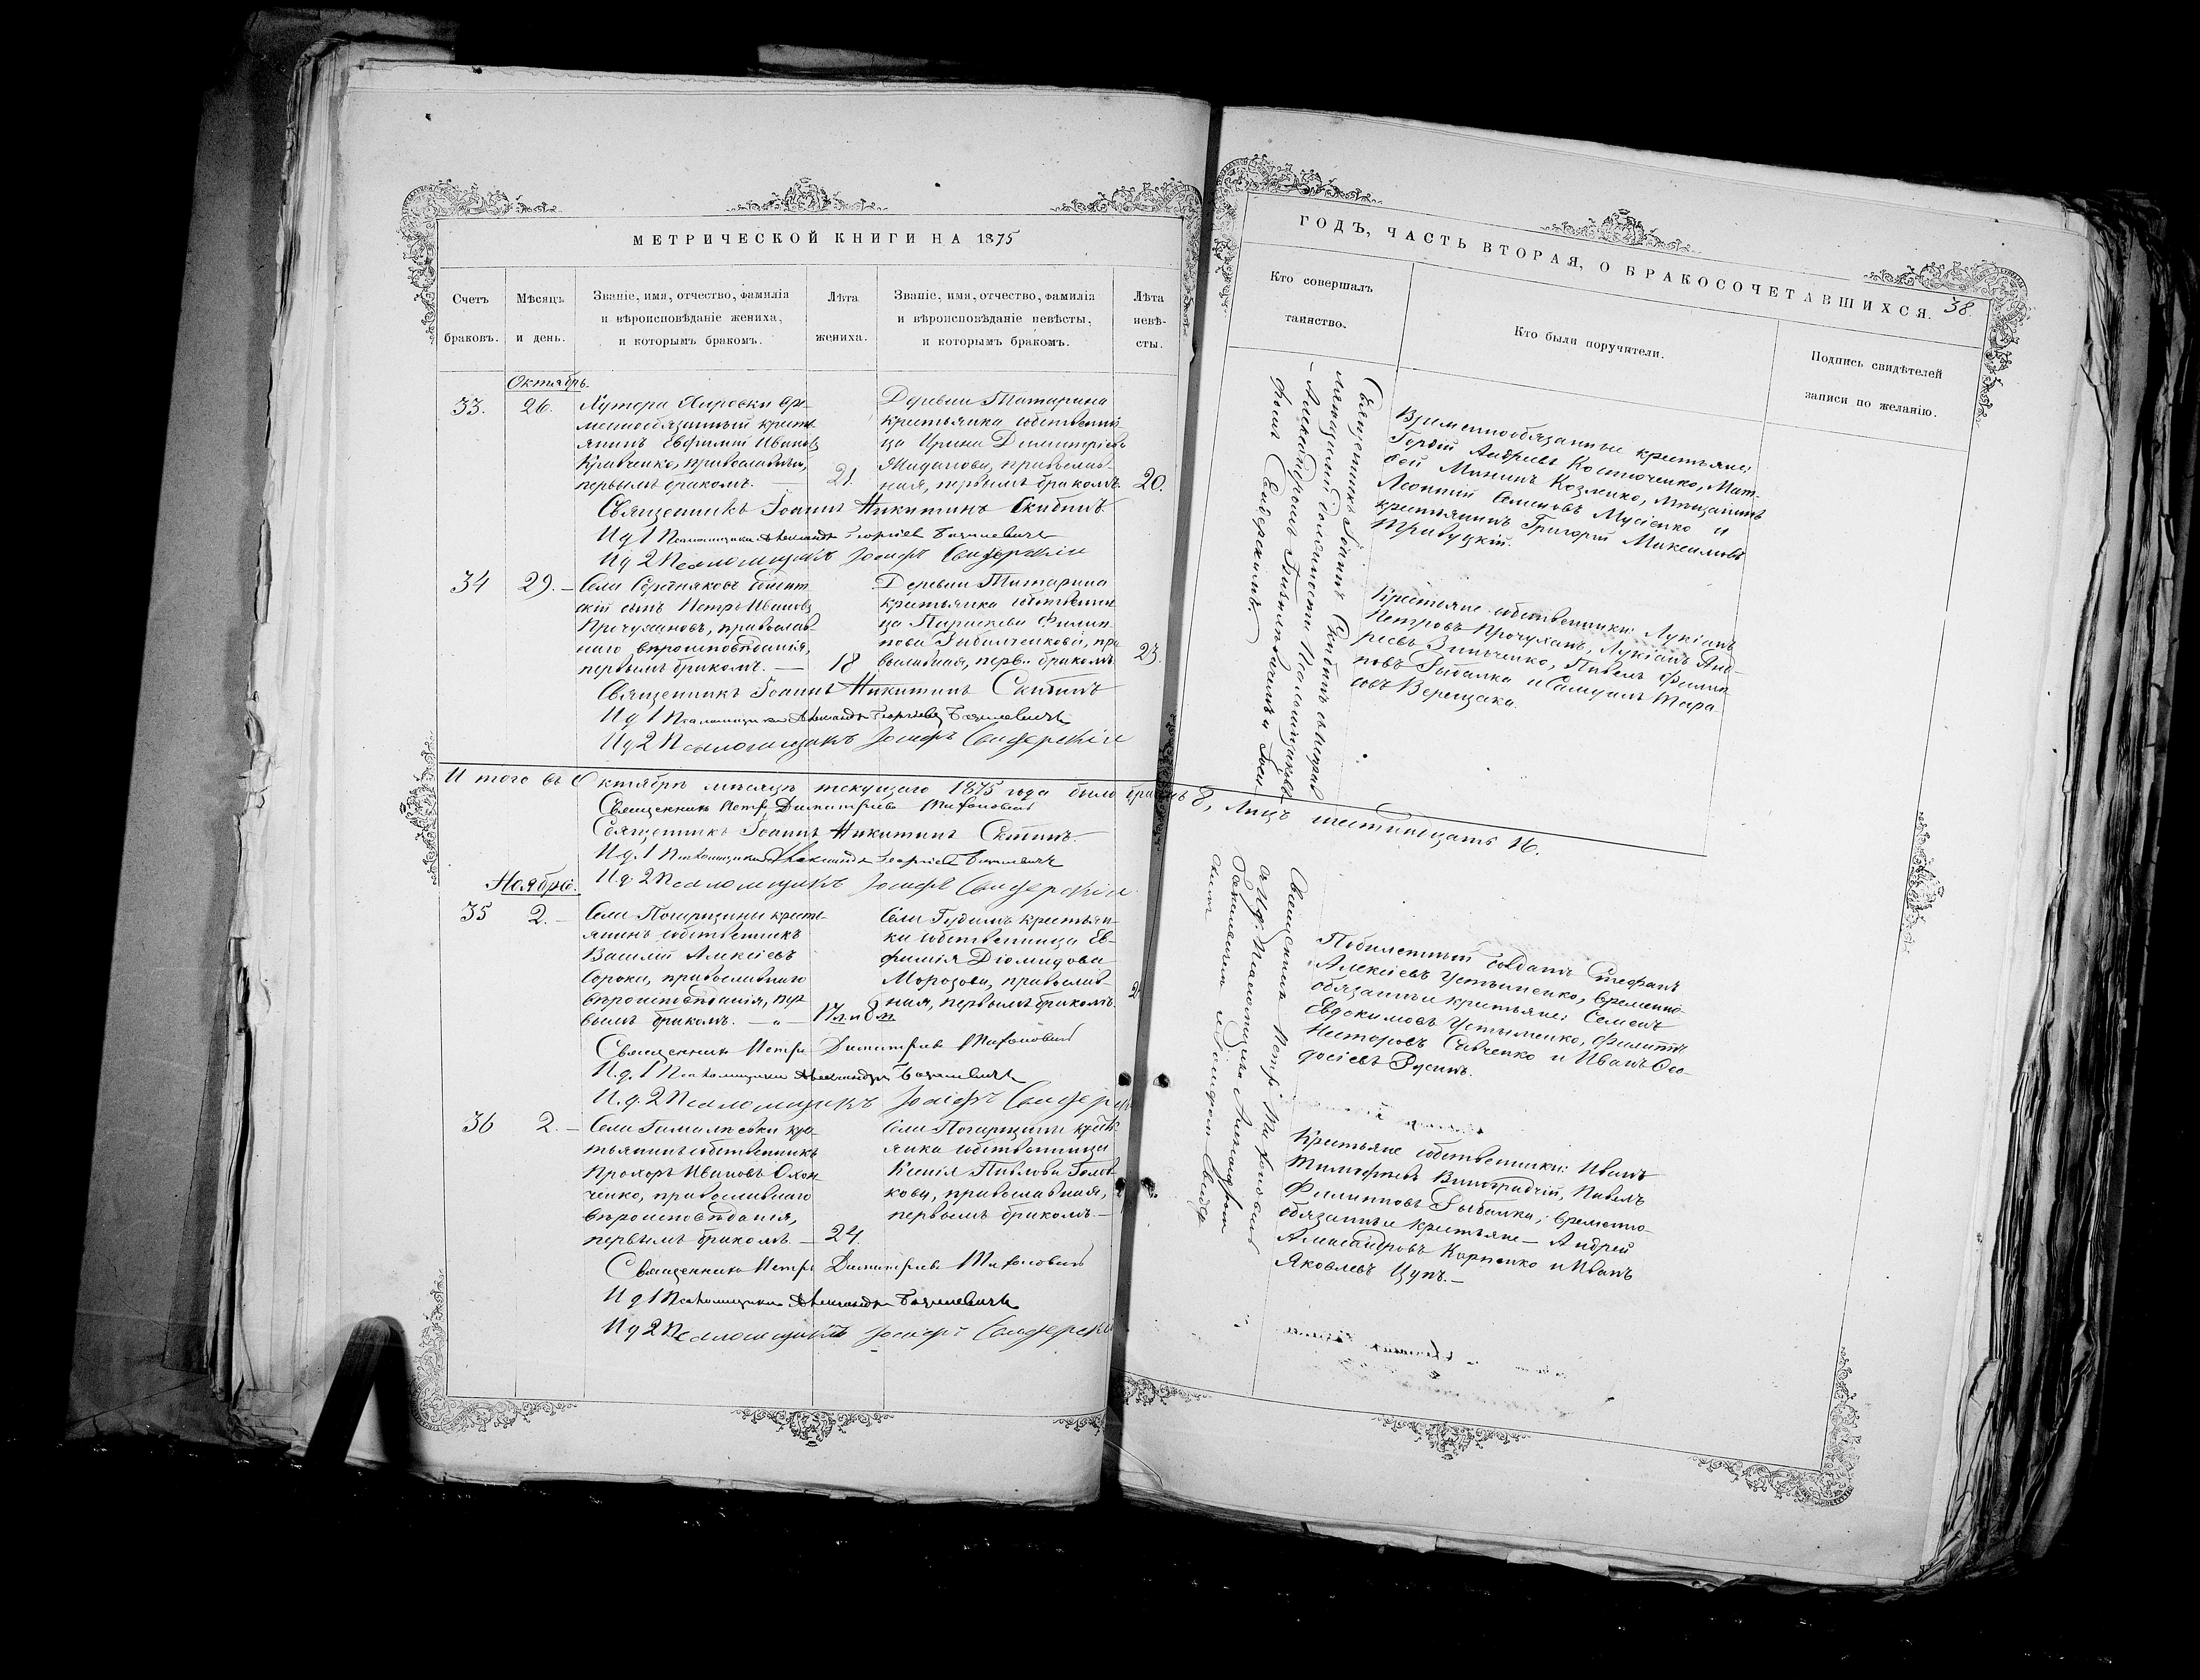 МЕТРИЧЕСКОЙ КНИГИ НА 1875
Счетъ
браковъ.
Мѣсяцъ
и день.
Званіе, имя, отчество, фамилія
и вѣроисповѣданіе жениха,
и которымъ бракомъ.
Лѣта
жениха.
Званіе, имя, отчество, фамилія
и вѣроисповѣданіе невѣсты,
и которымъ бракомъ.
Лѣта
невѣ-
сты.
Октябрь.
33.
26.
Хутора вре-
меннообязанный кресть
янинъ Евфимій Ивановъ
Кравченко, православный,
первымъ бракомъ. —
21.
Деревни Татарина
крестьянка собственни
ца Ирина Димитріева
православ-
ная, первымъ бракомъ.
20.
Священникъ Іоаннъ Никитинъ Скибинъ.
И д 1 Псаломщика Александръ Георгіев Базилевичъ
И д 2 Псаломщикъ Іосифъ Сидерскій
34
29. –
Села
скій сынъ Петръ Ивановъ
православ-
наго вѣроисповѣданія,
первымъ бракомъ. —
18
Деревни Татарина
крестьянка собственни
ца Параскева Филип-
пова Рибалченкова, пра
вославная, перв. бракомъ.
23.
Священникъ Іоаннъ Никитинъ Скибинъ
И д 1 Псаломщика Александръ Георгіевъ Базилевичъ
И д 2 Псаломщикъ Іосифъ Сидерскій
И того въ Октябрѣ мѣсяцѣ текущаго 1875 года было браковъ 8, Лицъ шестнадцать 16.
Священникъ Петръ Димитріевъ Тихоновичъ
Священникъ Іоаннъ Никитинъ Скибинъ.
И.д. 1 Псаломщика Александръ Георгіев Базилевичъ
И д. 2 Псаломщикъ Іосифъ Сидерскій
Ноября.
35
2. –
Села Погарщины кресть-
янинъ собственникъ
Василій Алексіевъ
Сорока, православнаго
вѣроисповѣданія, пер
вымъ бракомъ. —„—
17 л. и 8 м.
Села Гудимъ крестьян-
ка собственница Ев-
фимія Діомидова
Морозова, православ-
ная, первымъ бракомъ.
Священникъ Петръ Димитріевъ Тихоновичъ
И.д. 1 Псаломщика Александръ Базилевичъ
И.д. 2 Псаломщикъ Іосифъ
36
2. –
Села кре-
стьянинъ собственникъ
Прохоръ Ивановъ
православнаго
вѣроисповѣданія,
первымъ бракомъ. –
24.
Села Погарщины кресть
янка собственница
Ксенія Павлова
православная,
первымъ бракомъ. –
Священникъ Петръ Димитріевъ Тихоновичъ
И д 1 Псаломщика Александръ Базилевичъ
И д 2 Псаломщикъ Іосифъ
ГОДЪ, ЧАСТЬ ВТОРАЯ, О БРАКОСОЧЕТАВШИХСЯ. 38.
Кто совершалъ
таинство.
Кто были поручители.
Подпись свидѣтелей
записи по желанію.
Священникъ Іоаннъ Скибинъ съ исправ
ляющимъ должность Псаломщиковъ
– Александромъ Базилевичемъ и Іоси
фомъ Сидерскимъ.
Временнообязанные крестьяне:
Гордій Андріевъ Костюченко, Мат-
ѳей Мининъ Козменко, мѣщанинъ
Леонтій Семеновъ Мусіенко и
крестьянинъ Григорій Максимовъ
Трибуцкій.
Крестьяне собственники: Лукіанъ
Петровъ Прочуханъ, Лукіанъ Анд-
реевъ Зинченко, Павелъ Филип
повъ Рыбалка и Самуилъ Тара
совъ Верещака.
Священникъ Петръ Тихоновичъ
съ И.д. Псаломщика Александромъ
Базилевичемъ и Іосифомъ Сидер
скимъ
Побилетный солдатъ Стефанъ
Алексіевъ Устименко, временно-
обязанные крестьяне: Семенъ
Евдокимовъ Устименко, Филиппъ
Несторовъ Савченко и Иванъ Ѳео-
досіевъ Русинъ.
Крестьяне собственники: Иванъ
Тимофѣевъ Виноградскій, Павелъ
Филипповъ Рыбалка, временно-
обязанные крестьяне – Андрей
Александровъ Карпенко и Иванъ
Яковлевъ Цупъ. –